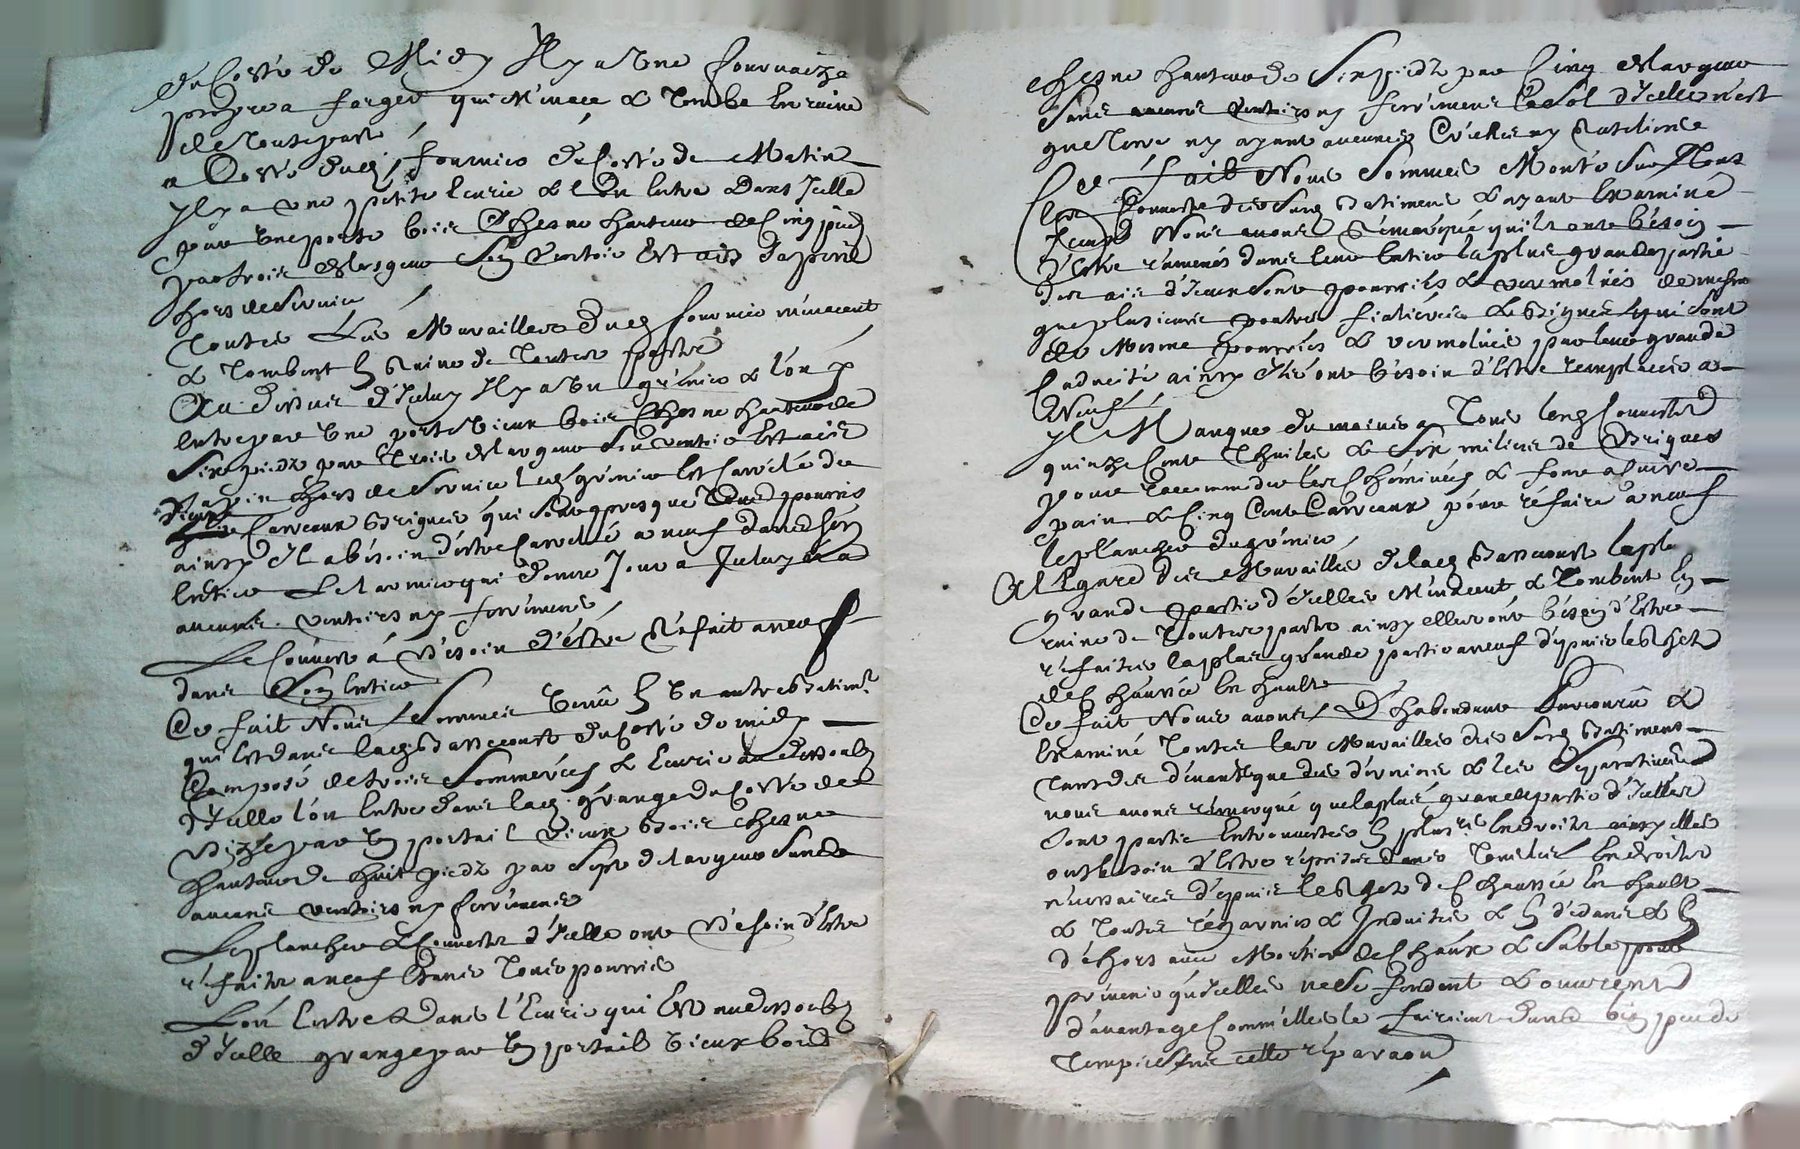 du Costé de Midy Il y a Une fournaize
propre a forger qui Menace & Tombe En ruine
de Toute part
a Costé dud. fournier du Costé de Matin
Il y a une petite Ecurie & l'on Entre Dans Icelle
par Une porte bois Chesne hauteur de Cinq pieds
par trois de largeur Son Ventois Est ais de sapin
hors de Service
Toutes Les Murailles dud. fournier menacent
& Tombent En Ruine de Toutes parts
Au dessus d'Iceluy Il y a Un grénier & l'on y
Entre par Une porte Vieux bois Chesne hauteur de
Six pieds par Trois de largeur Son ventois Est ais
Sapin hors de Service led. grénier Est Carrelé de
Vieux Carreaux Briques qui sont presque Tous pourris
ainsy Il a bésoin d'éstre Carrellé a neuf dans Son
Entier Le Larmier qui donne Jour à Iceluy n'a
aucuns ventois ny ferrémens
Le Couvert à Bésoin d'éstre Réfait a neuf
dans Son Entier
Ce fait Nous Sommes Venû En Un autre Batiment
qui Est dans lad. Bassecourt du Costé de midy
Composé de trois Sommérées & Ecurie au dessoubs
d'Icelle l'on Entre dans lad. grange du Costé de
Bize par Un portail Vieux Bois Chesne
hauteur de huit pieds par Sept de largeur Sans
aucuns ventois ny ferrémens
Le plancher & Couvert d'Icelle ont Bésoin d'Estre
réfaits a neuf Etans Tous pourris
L'on Entre Dans l'Ecurie qui Est au dessoubs
d'Icelle grange par Un portail Vieux bois
Chesne hauteur de Six pieds par Cinq de largeur
Sans aucuns Ventois ny ferrémens Le Sol d'Icelle n'est
que Terre ny ayant aucunes Créches ny Rattéliers
Ce fait Nous Sommes Monté Sur Tous
Les Couverts des Susd. Batimens & ayant Examiné
Iceux Nous avons Rémarqué qu'ils ont bésoin
d'Estre rémaniés dans leur Entier la plus grande partie
des ais d'Iceux Sont pourriés & vermolües de mesme
que plusieurs poutres qui Sont
de Mesme pourriés & vermolües par leur grande
Caducité ainsy Elles ont bésoin d'Estre remplacées a
Neuf
Il Manque du moins a Tous lesd. Couverts
quinze Cent Thuiles & Six milliers de Briques
pour raccommoder les Chéminées & four a Cuire
pain & Cinq Cent Carreaux pour réfaire a neuf
le plancher du grénier
A l'Egard des Murailles de lad. Bassecourt la plus
grande partie d'Icelles Menacent & Tombent En
ruine de Toutes parts ainsy elles ont bésoin d'Estre
réfaites la plus grande partie a neuf dépuis le Rest
de Chaussée En hault
Ce fait Nous avons D'habondant Parcourû &
Examiné Toutes les Murailles des Susd. Batimens
Tant des dévants que des dérriers & les Séparations
nous avons rémarqué que la plus grande partie d'Icelles
Sont partie Entrouvertes En plusrs. Endroits ainsy elles
ont bésoin d'Estre réprises dans Tous les Endroits
nécessaires dépuis le Rest de Chaussée En hault
& Toutes régarnies & Induites & En dédans & En
déhors avec Mortier de Chaux & Sable pour
prévenir qu'Icelles ne Se fondent & ouvrent
d'avantage Comm'elles le fairoient dans bien peu de
Temps Sans cette réparaon